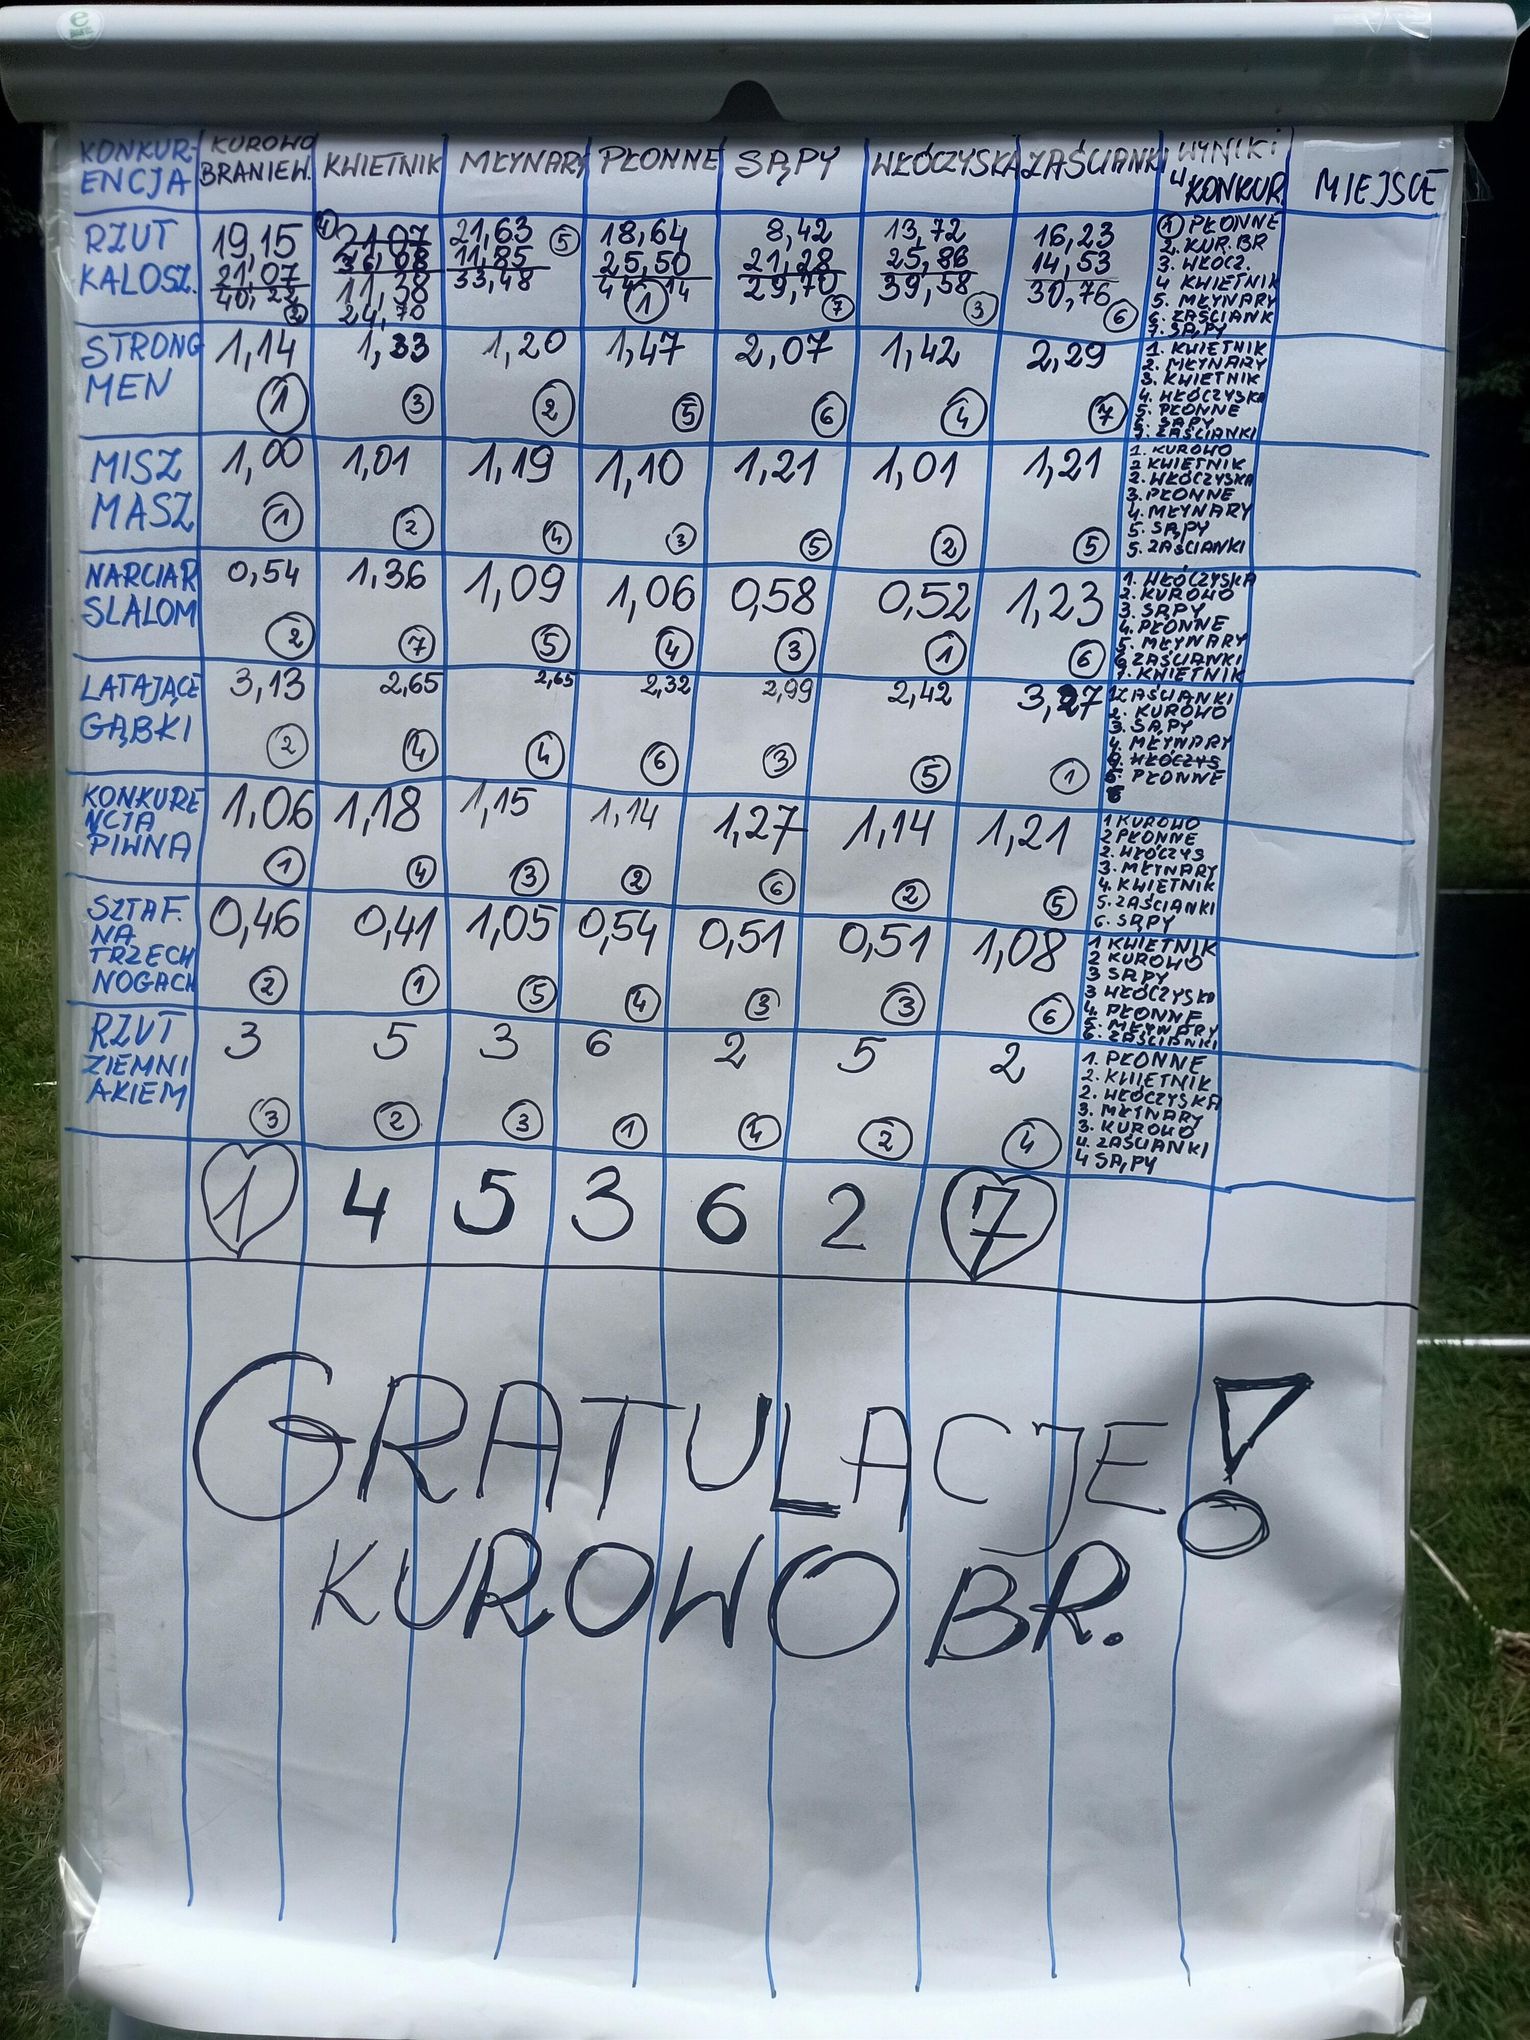 KONKUR- KUROWO KWIETNIK MŁYNARY PŁONNE SĄPY WŁÓCZYSKA ZAŚCIANKI WYNIKI MIEJSCE
ENCJA BRANIEW. W KONKUR.
RZUT 19,15 4 21,07 21,63 5 18,64 8,42 13,72 16,23 1 PŁONNE
KALOSZ. 21,07 11,85 25,50 21,28 25,86 14,53 2. KUR.BR
40,22 11,38 33,48 44,14 29,70 39,58 30,76 3. WŁÓCZ.
2 24,70 1 7 3 6 4 KWIETNIK
5. MŁYNARY
6. ZAŚCIANK
7. SĄPY
STRONG 1,14 1,33 1,20 1,47 2,07 1,42 2,29 1. KWIETNIK
MEN 1 3 2 5 6 4 7 2. MŁYNARY
3. KWIETNIK
4. WŁÓCZYSKA
5. PŁONNE
6. SĄPY
7. ZAŚCIANKI
MISZ 1,00 1,01 1,19 1,10 1,21 1,01 1,21 1. KUROWO
MASZ 1 2 4 3 5 2 5 2 KWIETNIK
2. WŁÓCZYSKA
3. PŁONNE
4. MŁYNARY
5. SĄPY
5. ZAŚCIANKI
NARCIAR 0,54 1,36 1,09 1,06 0,58 0,52 1,23 1. WŁÓCZYSKA
SLALOM 2 7 5 4 3 1 6 2. KUROWO
3. SĄPY
4. PŁONNE
5. MŁYNARY
6 ZAŚCIANKI
7. KWIETNIK
LATAJĄCE 3,13 2,65 2,65 2,32 2,99 2,42 3,27 1 ZAŚCIANKI
GĄBKI 2 4 4 6 3 5 1 2. KUROWO
3. SĄPY
4. MŁYNARY
WŁÓCZYS
6. PŁONNE
KONKURE 1,06 1,18 1,15 1,14 1,27 1,14 1,21 1 KUROWO
NCJA 1 4 3 2 6 2 5 2 PŁONNE
PIWNA 2. WŁÓCZYS
3. MŁYNARY
4. KWIETNIK
5. ZAŚCIANKI
6. SĄPY
SZTAF. 0,46 0,41 1,05 0,54 0,51 0,51 1,08 1 KWIETNIK
NA 2 1 5 4 3 3 6 2 KUROWO
TRZECH 3 SĄPY
NOGACH 3 WŁÓCZYSKA
4. PŁONNE
5. MŁYNARY
6. ZAŚCIANKI
RZUT 3 5 3 6 2 5 2 1. PŁONNE
ZIEMNI 3 2 3 1 4 2 4 2. KWIETNIK
AKIEM 2. WŁÓCZYSKA
3. MŁYNARY
3. KUROWO
4. ZAŚCIANKI
4 SĄPY
1 4 5 3 6 2 7
GRATULACJE!
KUROWO BR.